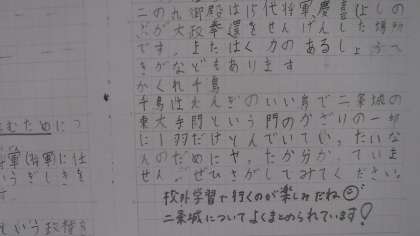 二の丸御殿は15代将軍、慶喜(よしの
ぶが大政奉還をせんげんした場所
です。またはく力のあるしょうへ
きがなどもあります
かくれ千鳥
千鳥はえんぎのいい鳥で二条城の
東大手門という門のかざりの一部
に1羽だけとんでいてい。たいな
んのためにヤ、たか分か、ていま
せん。ぜひさがしてみてください。
校外学習で行くのが楽しみだね☺
二条城についてよくまとめられています!
むために
将軍(将軍に任
いうぎしきを
いう政権を